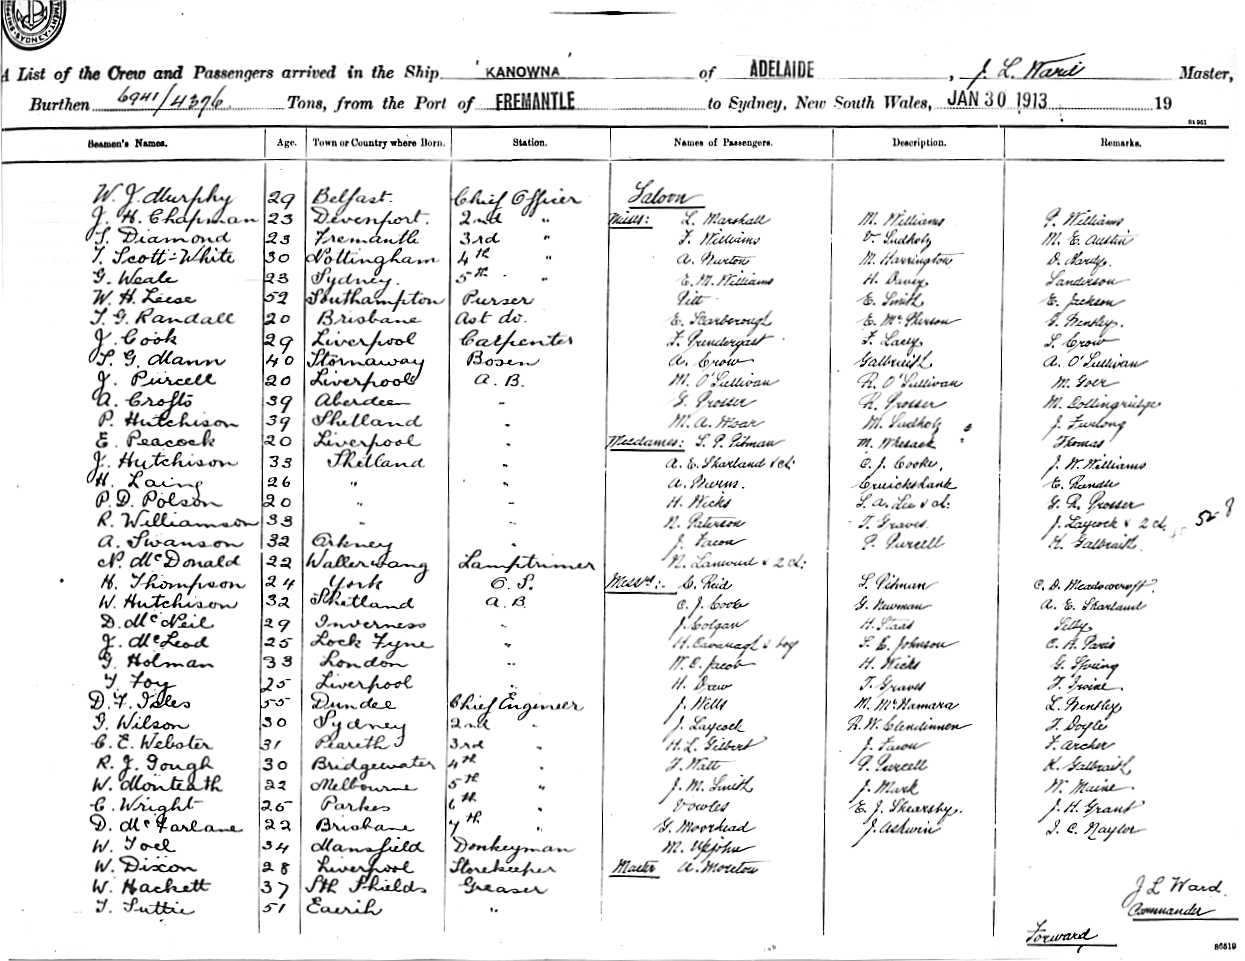 SYDNEY
A List of the Crew and Passengers arrived in the Ship 'KANOWNA' of ADELAIDE, J. L. Ward Master,
Burthen 6941/4376 Tons, from the Port of FREMANTLE to Sydney, New South Wales, JAN 30 1913 19
Seamen's Names. Age. Town or Country where Born. Station. Names of Passengers. Description. Remarks.
W. J. Murphy 29 Belfast. Chief Officer Saloon
J. H. Chapman 23 Devenport. 2nd " Misses: L. Marshall M. Williams P. Williams
S. Diamond 23 Fremantle 3rd " F. Williams V. Sudholz M. E. Austin
T. Scott-White 30 Nottingham 4th " A. Burton M. Harrington D. Hardy
G. Weale 23 Sydney. 5th " E. M. Williams H. Davey Sanderson
W. H. Leese 52 Southampton Purser Pitt E. Smith E. Jackson
T. G. Randall 20 Brisbane Ast do. E. Scarborough E. McPherson S. Hensley.
J. Cook 29 Liverpool Carpenter F. Prendergast F. Lacey S. Crow
S. G. Mann 40 Stornaway Bosen A. Crow Galbraith A. O'Sullivan
J. Purcell 20 Liverpool A. B. M. O'Sullivan R. O'Sullivan M. Goer
A. Crofts 39 Aberdeen " G. Prosser R. Prosser M. Collingridge
P. Hutchison 39 Shetland " M. A. Moar M. Sudholz J. Furlong
E. Peacock 20 Liverpool " Mesdames: S. P. Pitman M. Thomas
J. Hutchison 33 Shetland " A. E. Sharland & ch: C. J. Cooke, J. W. Williams
H. Laing 26 " " A. Cruickshank E. Rundle
P. D. Polson 20 " " H. Wicks S. A. Lee & ch: G. R. Prosser
R. Williamson 33 " " N. Paterson T. Graves. J. Laycock & 2 ch. 528
A. Swanson 32 Orkney " J. Facon P. Purcell H. Galbraith
N. McDonald 22 Wallerwang Lamptrimer N. & 2 ch:
H. Thompson 24 York O. S. Messrs:- C. Reid S. Pitman C. D. Meadowcroft.
W. Hutchison 32 Shetland A. B. C. J. Cooke G. Newman A. E. Sharland
D. McNeil 29 Inverness " J. Colgan H. Staas Tilly
J. McLeod 25 Lock Fyne " H. Cavanagh & boy S. E. Johnson C. H. Paris
G. Holman 33 London " W. C. Jacob H. Wicks G. Spring
T. Foy 25 Liverpool " H. Drew T. Graves F. Irvine
D. F. Isles 55 Dundee Chief Engineer J. Wells M. McNamara L. Hensley
T. Wilson 30 Sydney 2nd " J. Laycock R. W. Clendinnen F. Doyle
C. E. Webster 31 3rd " H. L. Gilbert J. Facon F. Archer
R. J. Gough 30 Bridgewater 4th " F. Watt P. Purcell K. Galbraith
W. Monteath 22 Melbourne 5th " J. M. Smith J. Mark W. Maine.
C. Wright 25 Parkes 6th " Vowles E. J. Shearsby. J. H. Grant
D. McFarlane 22 Brisbane 7th " G. Moorhead J. Ashwin I. C. Naylor
W. Toel 34 Mansfield Donkeyman M. Upjohn
W. Dixon 28 Liverpool Storekeeper Master A. Moreton
W. Hackett 37 Sth Shields Greaser J L Ward.
T. Suttie 51 " Commander
Forward
86519